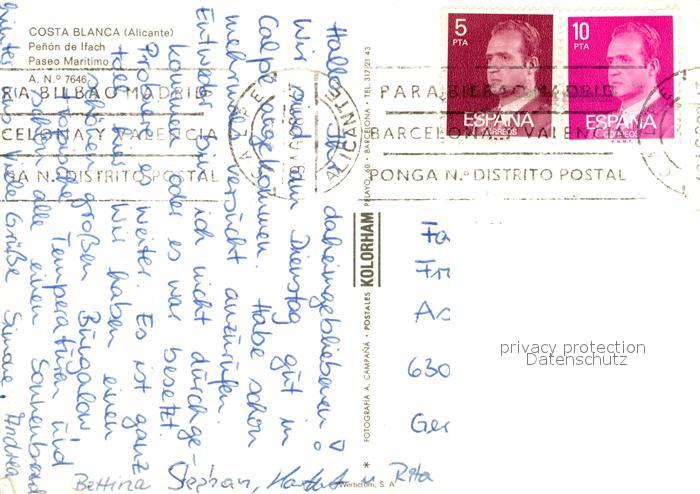 COSTA BLANCA (Alicante)
Peñón de Ifach
Paseo Marítimo
A. N.º 7646
5
PTA
ESPAÑA
CORREOS
F.N.M.T.
10
PTA
ESPAÑA
CORREOS
F.N.M.T.
RIA BILBAO MADRID
CELONA Y VALENCIA
NGA N.º DISTRITO POSTAL
ALICANTE
PARA BILBAO MADRID
BARCELONA Y VALENC
PONGA N.º DISTRITO POSTAL
Hallo Ihr daheimgebliebenen!
Wir sind am Dienstag gut in
Calpe angekommen. Habe schon
mehrmals versucht anzurufen.
Entweder bin ich nicht durchge-
kommen oder es war besetzt.
Probiere es weiter. Es ist ganz
toll hier. Wir haben einen
großen Bungalow
Temperaturen und
haben alle einen Sonnenbrand
Viele Grüße Simone, Andrea
Bettina Stephan, Rita
FOTOGRAFIA A. CAMPAÑÁ - POSTALES KOLORHAM PELAYO, 60 - BARCELONA - TEL. 317 21 43
Fa
Fr
As
630
Ger
privacy protection
Datenschutz